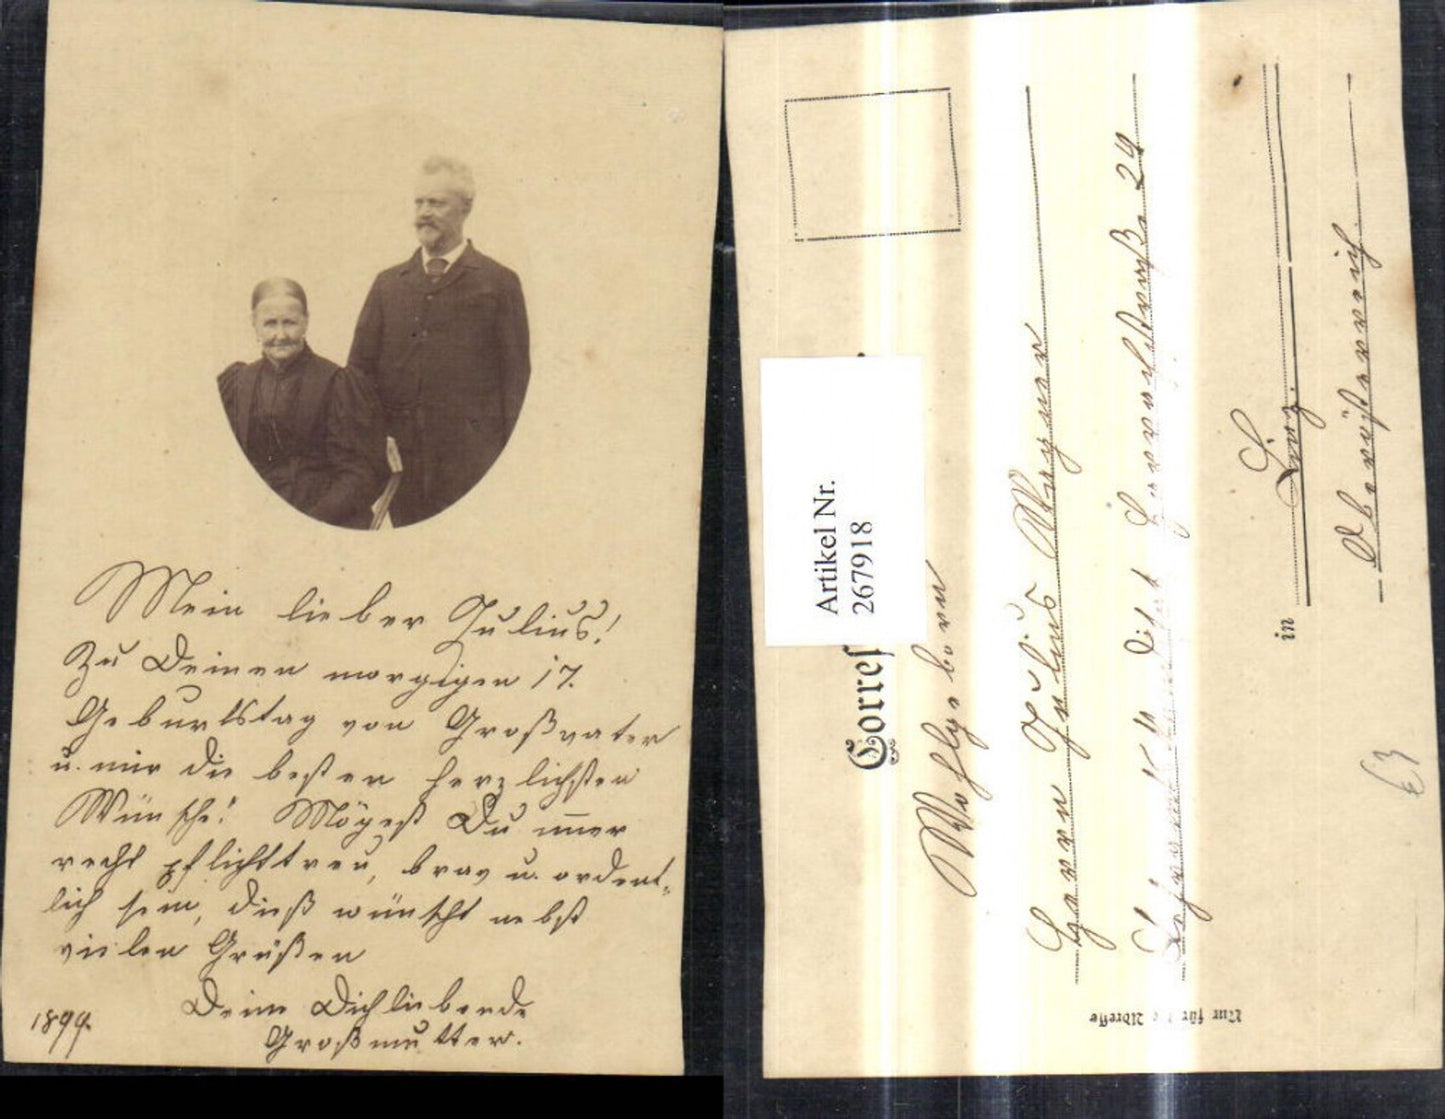 Mein lieber Julius!
Zu Deinem morgigen 17.
Geburtstag von Großvater
u. mir die besten herzlichsten
Wünsche! Mögest Du im̅er
recht pflichttreu, brav u. ordent-
lich sein, dieß wünscht nebst
vielen Grüßen
Deine Dichliebende
Großmutter.
1899.
Corres
Artikel Nr.
267918
Wohlgeboren
Herrn Julius Wagner
Herrenstraße 24
in Linz.
Oberösterreich.
Nur für Adresse